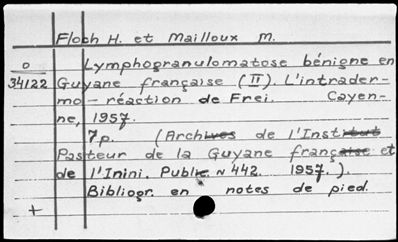 Floch H. et Mailloux M.
O Lymphogranulomatose bénigne en
34122 Guyane française (II). L'intrader-
mo-réaction de Frei. Cayen-
ne, 1957.
7p. (Archives de l'Institut
Pasteur de la Guyane française et
de l'Inini. Public N 442. 1957.).
Bibliogr. en notes de pied.
+